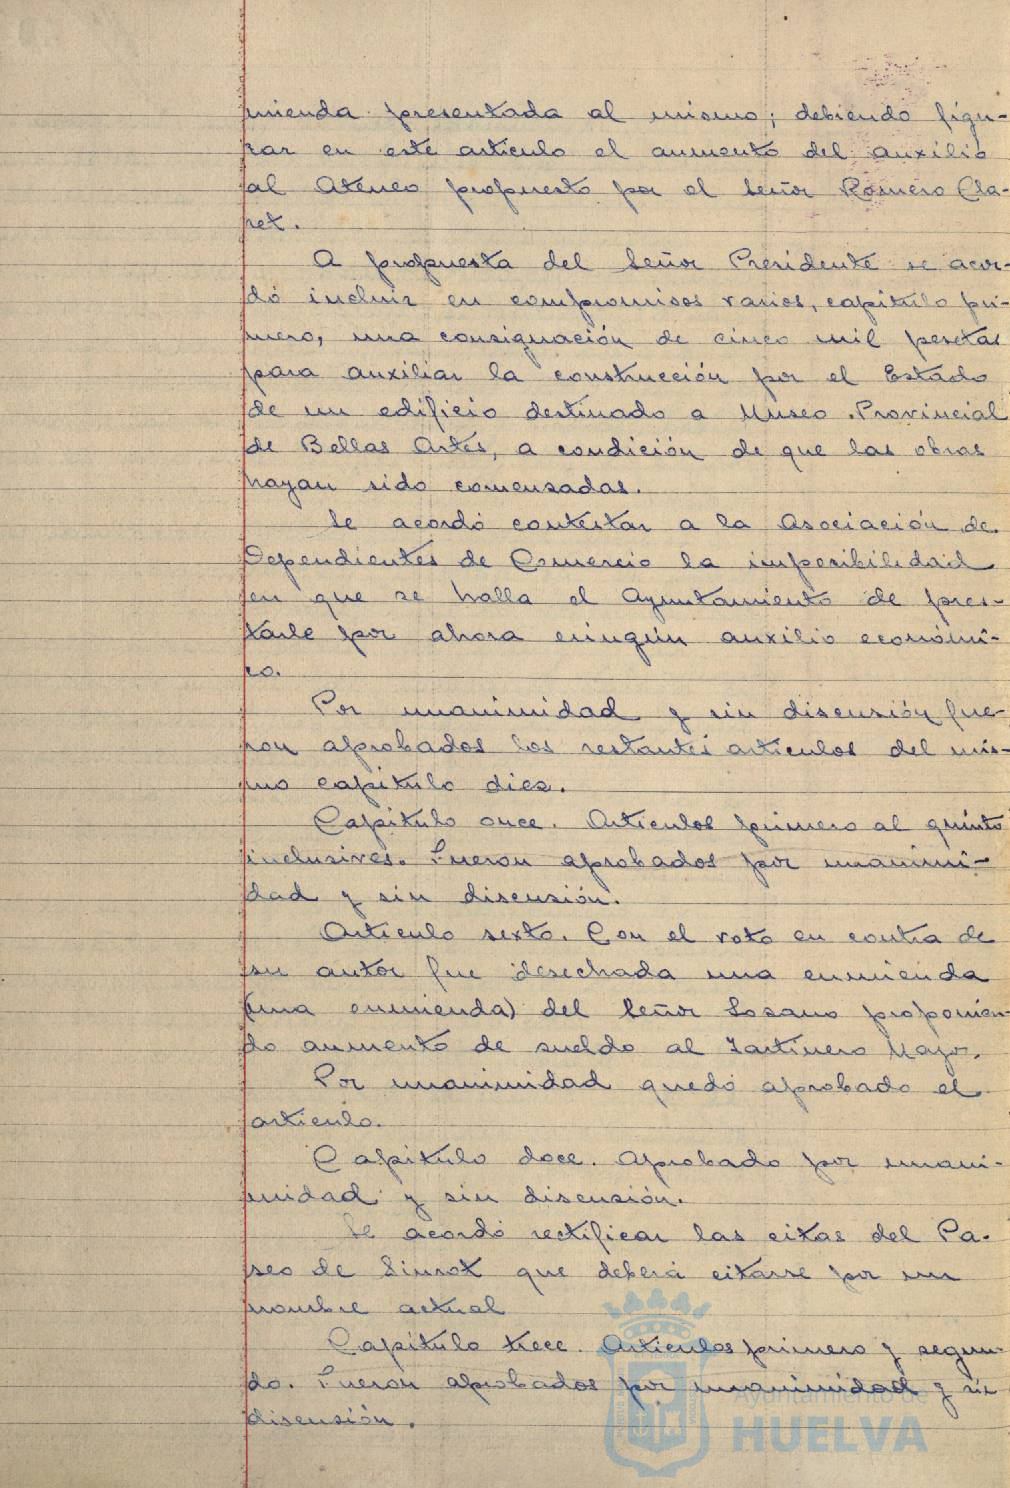 mienda presentada al mismo; debiendo figu-
rar en este artículo el aumento del auxilio
al Ateneo propuesto por el Señor Romero Cla-
ret.
A propuesta del Señor Presidente se acor-
dó incluir en compromisos varios, capítulo pri-
mero, una consignación de cinco mil pesetas
para auxiliar la construcción por el Estado
de un edificio destinado a Museo Provincial
de Bellas Artes, a condición de que las obras
hayan sido comenzadas.
Se acordó contestar a la Asociación de
Dependientes de Comercio la imposibilidad
en que se halla el Ayuntamiento de pres-
tarle por ahora ningún auxilio económi-
co.
Por unanimidad y sin discusión fue-
ron aprobados los restantes artículos del mis-
mo capítulo diez.
Capítulo once. Artículos primero al quinto
inclusives. Fueron aprobados por unanimi-
dad y sin discusión.
Artículo sexto. Con el voto en contra de
su autor fue desechada una enmienda
(una enmienda) del Señor Lozano proponien-
do aumento de sueldo al Jardinero Mayor.
Por unanimidad quedó aprobado el
artículo.
Capítulo doce. Aprobado por unani-
midad y sin discusión.
Se acordó rectificar las citas del Pa-
seo de Sinrot que deberá citarse por su
nombre actual
Capítulo trece. Artículos primero y segun-
do. Fueron aprobados por unanimidad y sin
discusión.
Ayuntamiento de
HUELVA